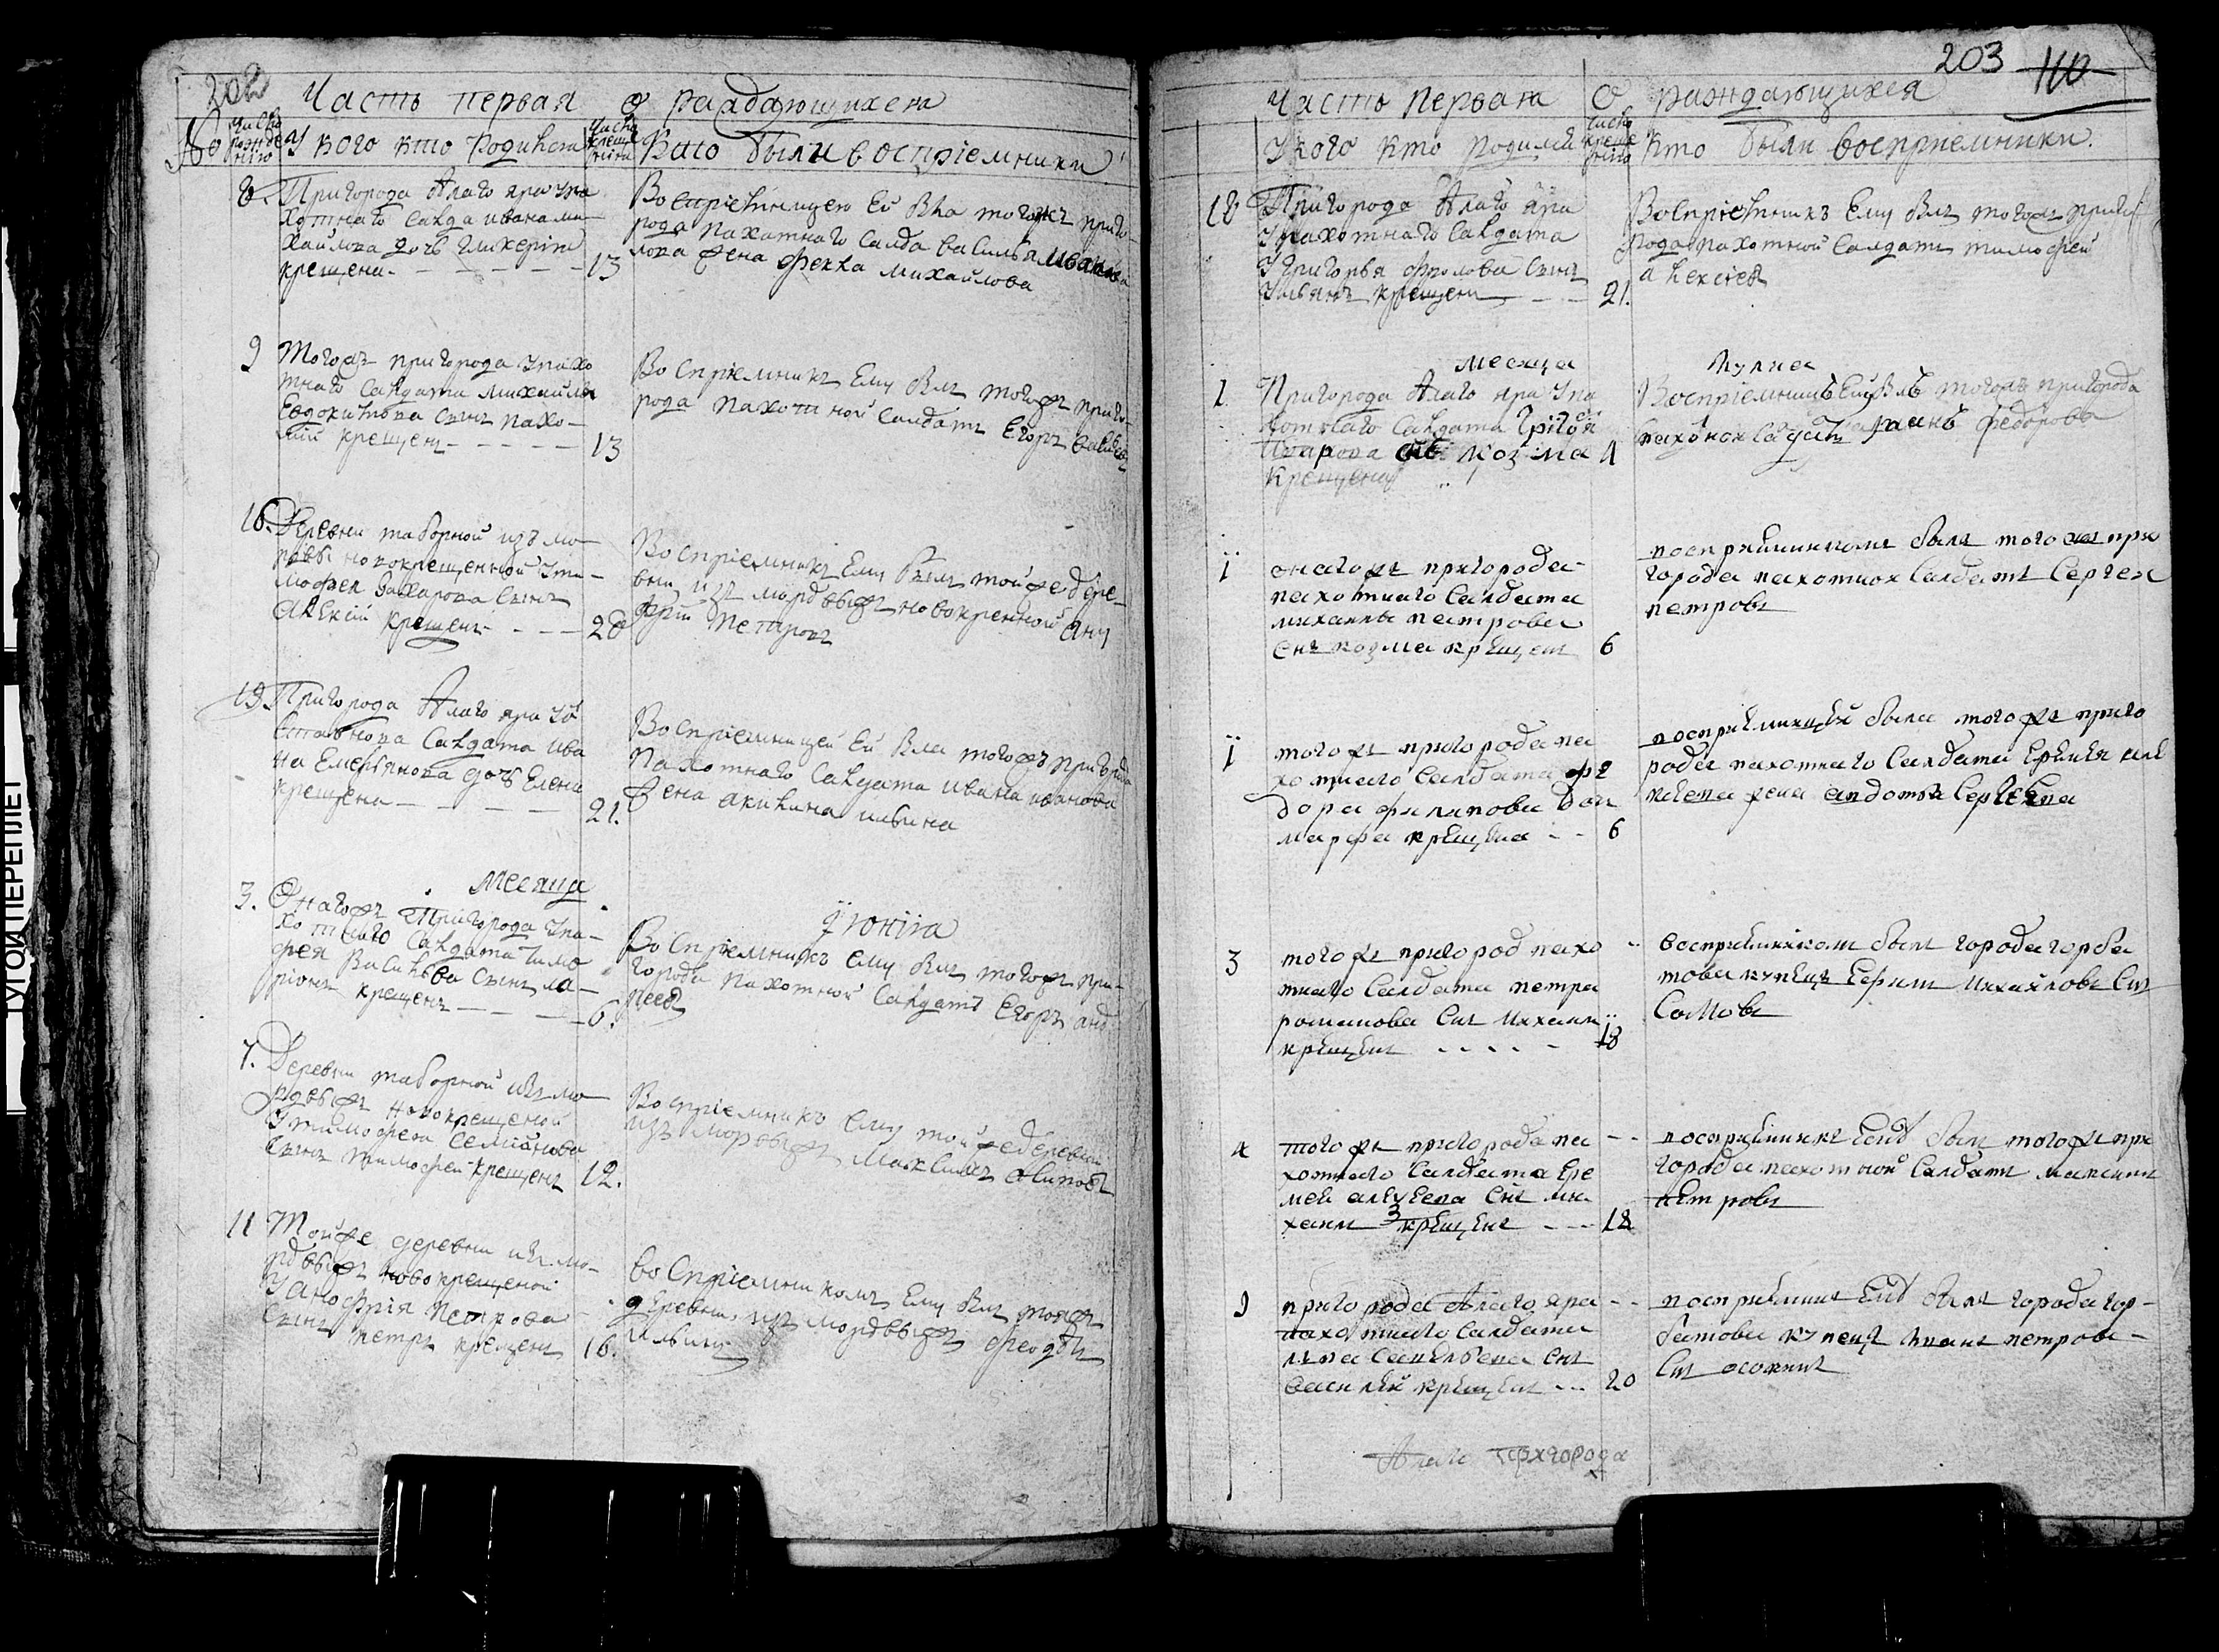 202
Часть первая О раждающихся
No число рожде нiя У кого кто родился число креще нiя Кто были воспрiемники
8. Пригорода Алаго яра у па
хотнаго салда ивана ми
хайлова дочь гликерiя
крещена 13
Воспрiемницею Ей бла тогожъ приго
рода пахотнаго салда василья иванова
жена фекла михайлова
9 Тогожъ пригорода у пахо
тнаго салдата михайла
Евдокимова сынъ пахо
мiй крещенъ 13
Воспрiемникъ Ему блъ тогожъ приго
рода пахотной салдатъ Егоръ
16. Деревни таборной изъ мо
новокрещенной у ти
мофея Захарова сынъ
крещенъ 20
Воспрiемникъ Ему былъ тойже дере
вни изъ мордвыжъ новокрещенной
Петровъ
19 Пригорода Алаго яра у о
ставнова салдата ива
на Емельянова дочь Елена
крещена 21.
Воспрiемницей Ей бла тогожъ пригорода
Пахотнаго салдата ивана иванова
жена акилина ильина
месяца
iюнiа
3. Онагожъ Пригорода у па
хотнаго салдата тимо
фея Васильева сынъ ла
рiонъ крещенъ 6.
Воспрiемникъ ему блъ тогожъ при
города пахотной салдатъ Егоръ анд
реевъ
7. Деревни таборной изъ мо
рдвыжъ новокрещеной
У тимофея Семiонова
сынъ тимофей крещенъ 12.
Воспрiемникъ ему тойже деревни
изъ мордвыжъ Максимъ осиповъ
11 Тойже деревни изъ мо
рдвыжъ новокрещеной
У анофрiя петрова
сынъ петръ крещенъ 16.
воспрiемникомъ Ему блъ тояжъ
деревни изъ мордвыжъ
ильинъ
203 110
Часть первая О раждающихся
У кого кто родился число креще нiя Кто были воспрiемники.
18 Пригорода Алаго яра
У пахотнаго салдата
У Григорья фролова сынъ
Ульянъ крещенъ 21.
Воспрiемникъ Ему блъ тогожъ приго
рода пахотной салдатъ тимофей
алексiевъ
месяца
iулиа
1 Пригорода Алаго яра у па
хотнаго салдата Григоя
козма 4
крещена
Воспрiемникъ Ему блъ тогожъ пригорода
федоровъ
i онагожъ пригорода
пахотнаго салдата
михаила петрова
снъ козма крещенъ 6
воспрiимникомъ былъ тогожъ при
города пахотнои салдатъ Сергеи
петровъ
i тогожъ пригорода па
хотнаго салдата фе
дора филипова доч
марфа крещена 6
воспрiимницей была тогожъ приго
рода пахотнаго салдата
жена авдотья Сергеева
3 тогожъ пригород пахо
тнаго салдата петра
романова снъ михаил
крещенъ 18
воспрiимникомъ былъ города горба
това купецъ Ефимъ михайловъ снъ
сомовъ
4 тогожъ пригорода па
хотнаго салдата Ере
мея снъ ми
хаил крещенъ 18
воспрiимникъ Ему былъ тогожъ при
города пахотной салдатъ максимъ
петровъ
9 пригорода Алаго яра
пахотнаго салдата
снъ
василей крещенъ 20
воспрiимникъ Ему былъ города гор
батова купецъ иванъ петровъ
снъ
Алаго